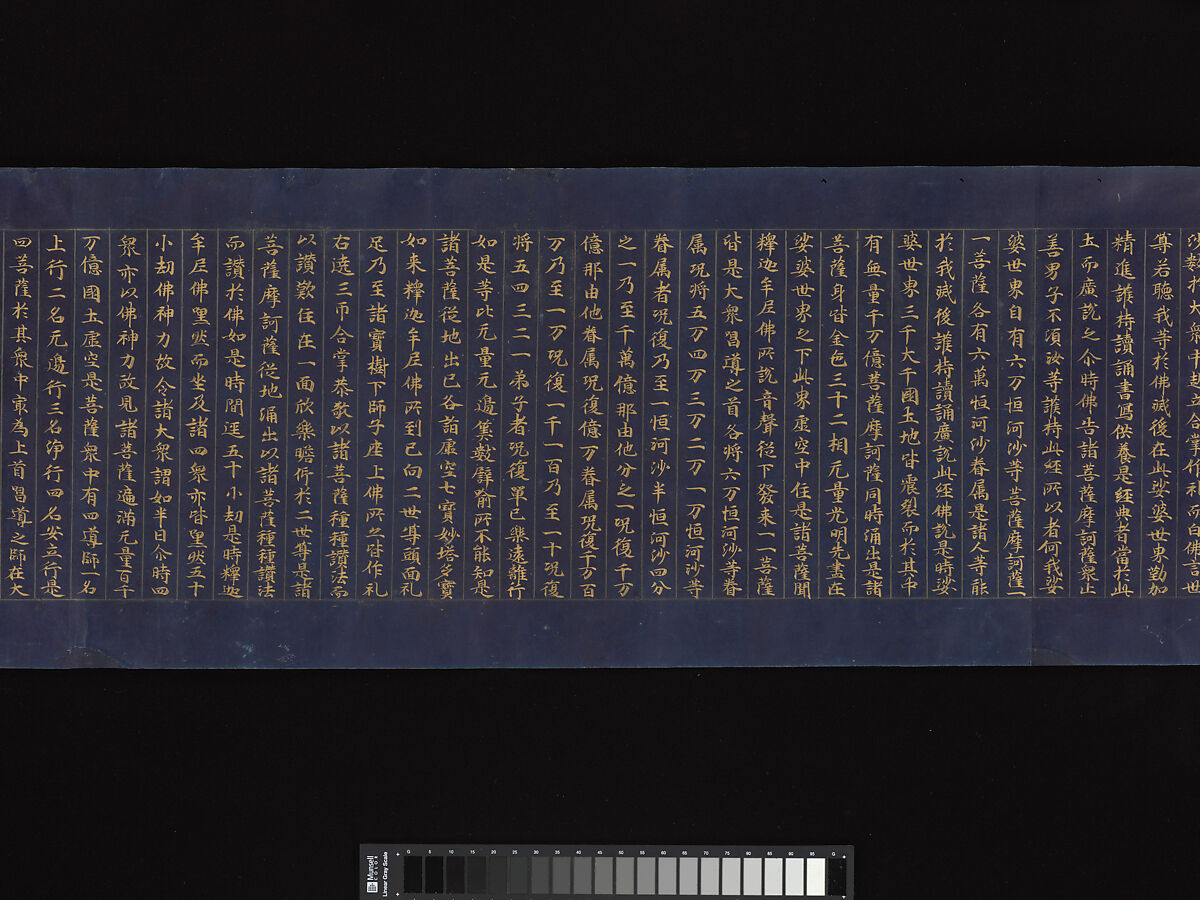 沙數於大衆中起立合掌作礼而白佛言世
尊若聽我等於佛滅後在此娑婆世界勤加
精進護持讀誦書寫供養是經典者當於此
土而廣說之尒時佛告諸菩薩摩訶薩衆止
善男子不須汝等護持此經所以者何我娑
婆世界自有六万恒河沙等菩薩摩訶薩一
一菩薩各有六萬恒河沙眷属是諸人等能
於我滅後護持讀誦廣說此經佛說是時娑
婆世界三千大千國土地皆震裂而於其中
有無量千万億菩薩摩訶薩同時涌出是諸
菩薩身皆金色三十二相无量光明先盡在
娑婆世界之下此界虛空中住是諸菩薩聞
釋迦牟尼佛所說音聲從下發来一一菩薩
皆是大衆唱導之首各將六万恒河沙等眷
属况將五万四万三万二万一万恒河沙等
眷属者况復乃至一恒河沙半恒河沙四分
之一乃至千萬億那由他分之一况復千万
億那由他眷属况復億万眷属况復千万百
万乃至一万况復一千一百乃至一十况復
將五四三二一弟子者况復單己樂遠離行
如是等比无量无邊筭數譬喻所不能知是
諸菩薩從地出已各詣虛空七寶妙塔多寶
如来釋迦牟尼佛所到已向二世尊頭面礼
足乃至諸寶樹下師子座上佛所亦皆作礼
右遶三帀合掌恭敬以諸菩薩種種讃法而
以讃歎住在一面欣樂瞻仰於二世尊是諸
菩薩摩訶薩從地涌出以諸菩薩種種讃法
而讃於佛如是時間逕五十小劫是時釋迦
牟尼佛黑然而坐及諸四衆亦皆黑然五十
小劫佛神力故令諸大衆謂如半日尒時四
衆亦以佛神力故見諸菩薩遍滿无量百千
万億國土虛空是菩薩衆中有四導師一名
上行二名无邊行三名淨行四名安立行是
四菩薩於其衆中冣為上首唱導之師在大
Munsell COLOR
Linear Gray Scale
G 5 10 15 20 25 30 35 40 45 50 55 60 65 70 75 80 85 90 95 G